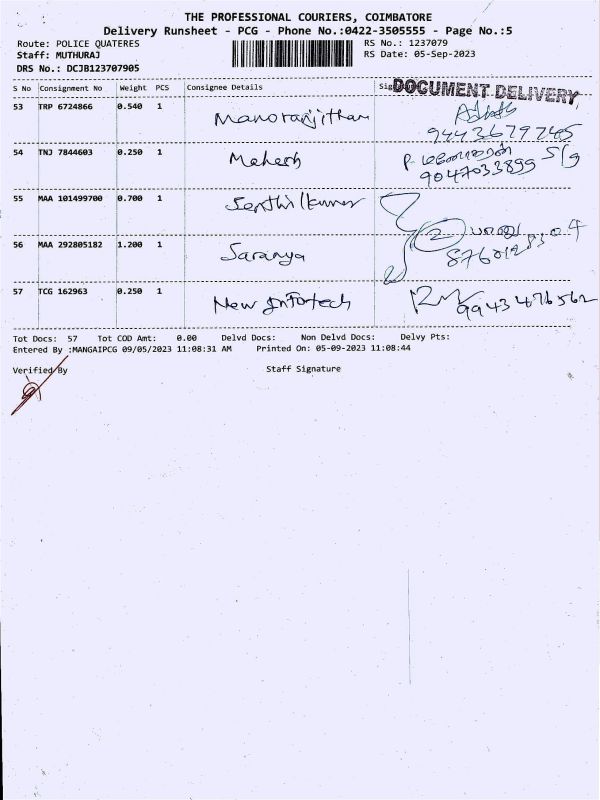 THE PROFESSIONAL COURIERS, COIMBATORE
Delivery Runsheet - PCG - Phone No.:0422-3505555 - Page No.:5
Route: POLICE QUATERES RS No.: 1237079
Staff: MUTHURAJ RS Date: 05-Sep-2023
DRS No.: DCJB123707905
S No Consignment No Weight PCS Consignee Details Sig DOCUMENT DELIVERY
53 TRP 6724866 0.540 1 Manoranjitham
9443679745
54 TNJ 7844603 0.250 1 Mahesh
9047033899 S/g
55 MAA 101499700 0.700 1 Senthilkumar
56 MAA 292805182 1.200 1 Saranya 2
8760128304
57 TCG 162963 0.250 1 New Infotech 9943476562
Tot Docs: 57 Tot COD Amt: 0.00 Delvd Docs: Non Delvd Docs: Delvy Pts:
Entered By :MANGAIPCG 09/05/2023 11:08:31 AM Printed On: 05-09-2023 11:08:44
Verified By Staff Signature